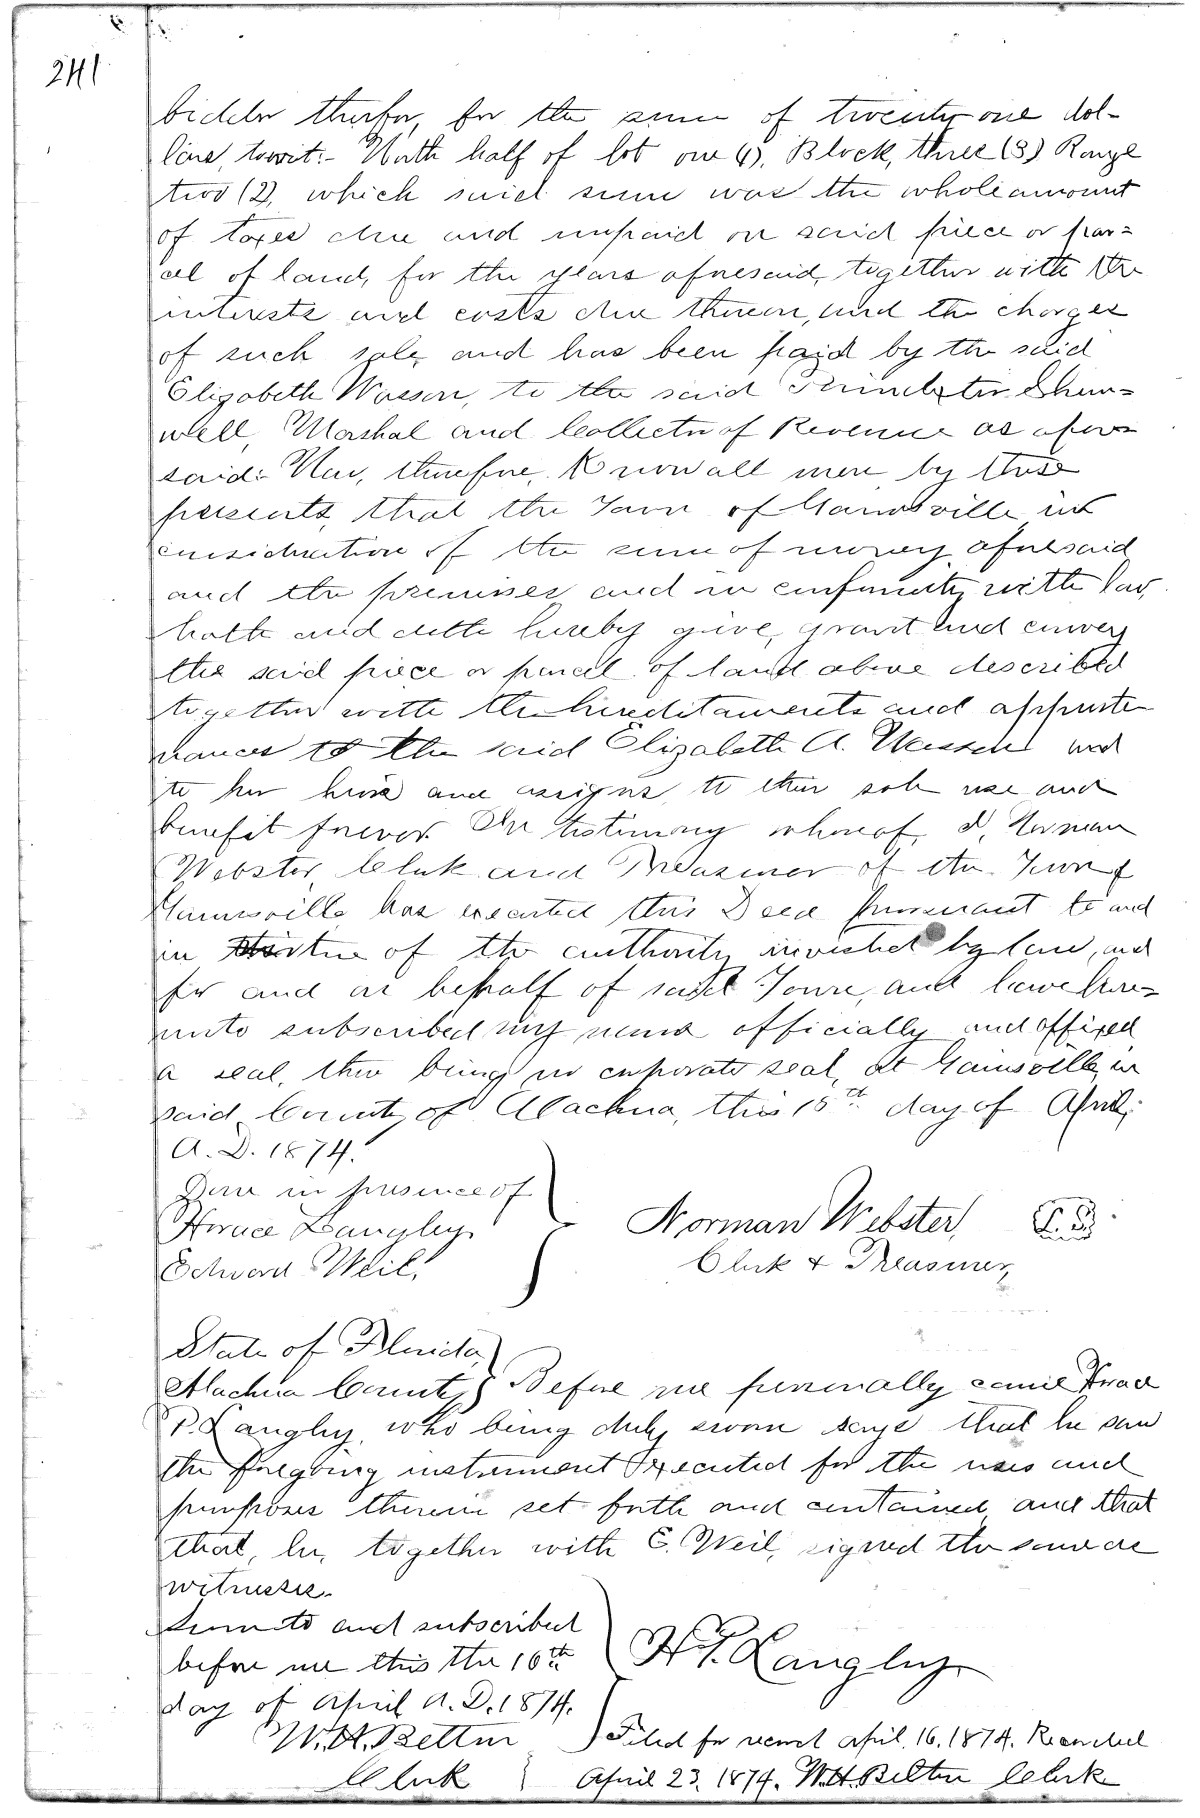 241
bidder therfor, for the sum of twenty one dol-
lars, towit:- North half of lot one (1), Block, three (3) Range
two (2), which said sum was the whole amount
of taxes due and unpaid on said piece or par=
cel of land, for the years aforesaid, together with the
interests and costs due thereon, and the charges
of such sale, and has been paid by the said
Elizabeth Wasson, to the said
well, Marshal and Collector of Revenue as afore=
said: Now, therefore, Know all men by these
presents, that the Town of Gainesville in
consideration of the sum of money aforesaid
and the premises and in conformity with law,
hath and doth hereby give, grant and convey
the said piece or parcel of land above described
together with the hereditaments and appurte
nances to the said Elizabeth A. Wasson and
to her heirs and assigns to their sole use and
benefit forever. In testimony whereof, I, Norman
Webster, Clerk and Treasurer of the Town of
Gainesville has executed this Deed pursuant to and
in virtue of the authority invested by law, and
for and on behalf of said Town, and have here=
unto subscribed my name officially and affixed
a seal, there being no corporate seal, at Gainsville, in
said County of Alachua, this 15th day of April,
A. D. 1874.
Done in presence of
Horace Langley,
Edward Weil.
Norman Webster, L. S.
Clerk & Treasurer,
State of Florida,
Alachua County } Before me personally came Horace
P. Langley, who being duly sworn says that he saw
the foregoing instrument executed for the uses and
purposes therein set forth and contained and that
that, he, together with E. Weil, signed the same as
witnesses.
Sworn to and subscribed
before me this the 16th
day of April A. D. 1874.
W. H. Belton
Clerk
H. P. Langley
Filed for record April 16, 1874. Recorded
April 23, 1874. W.H. Belton Clerk